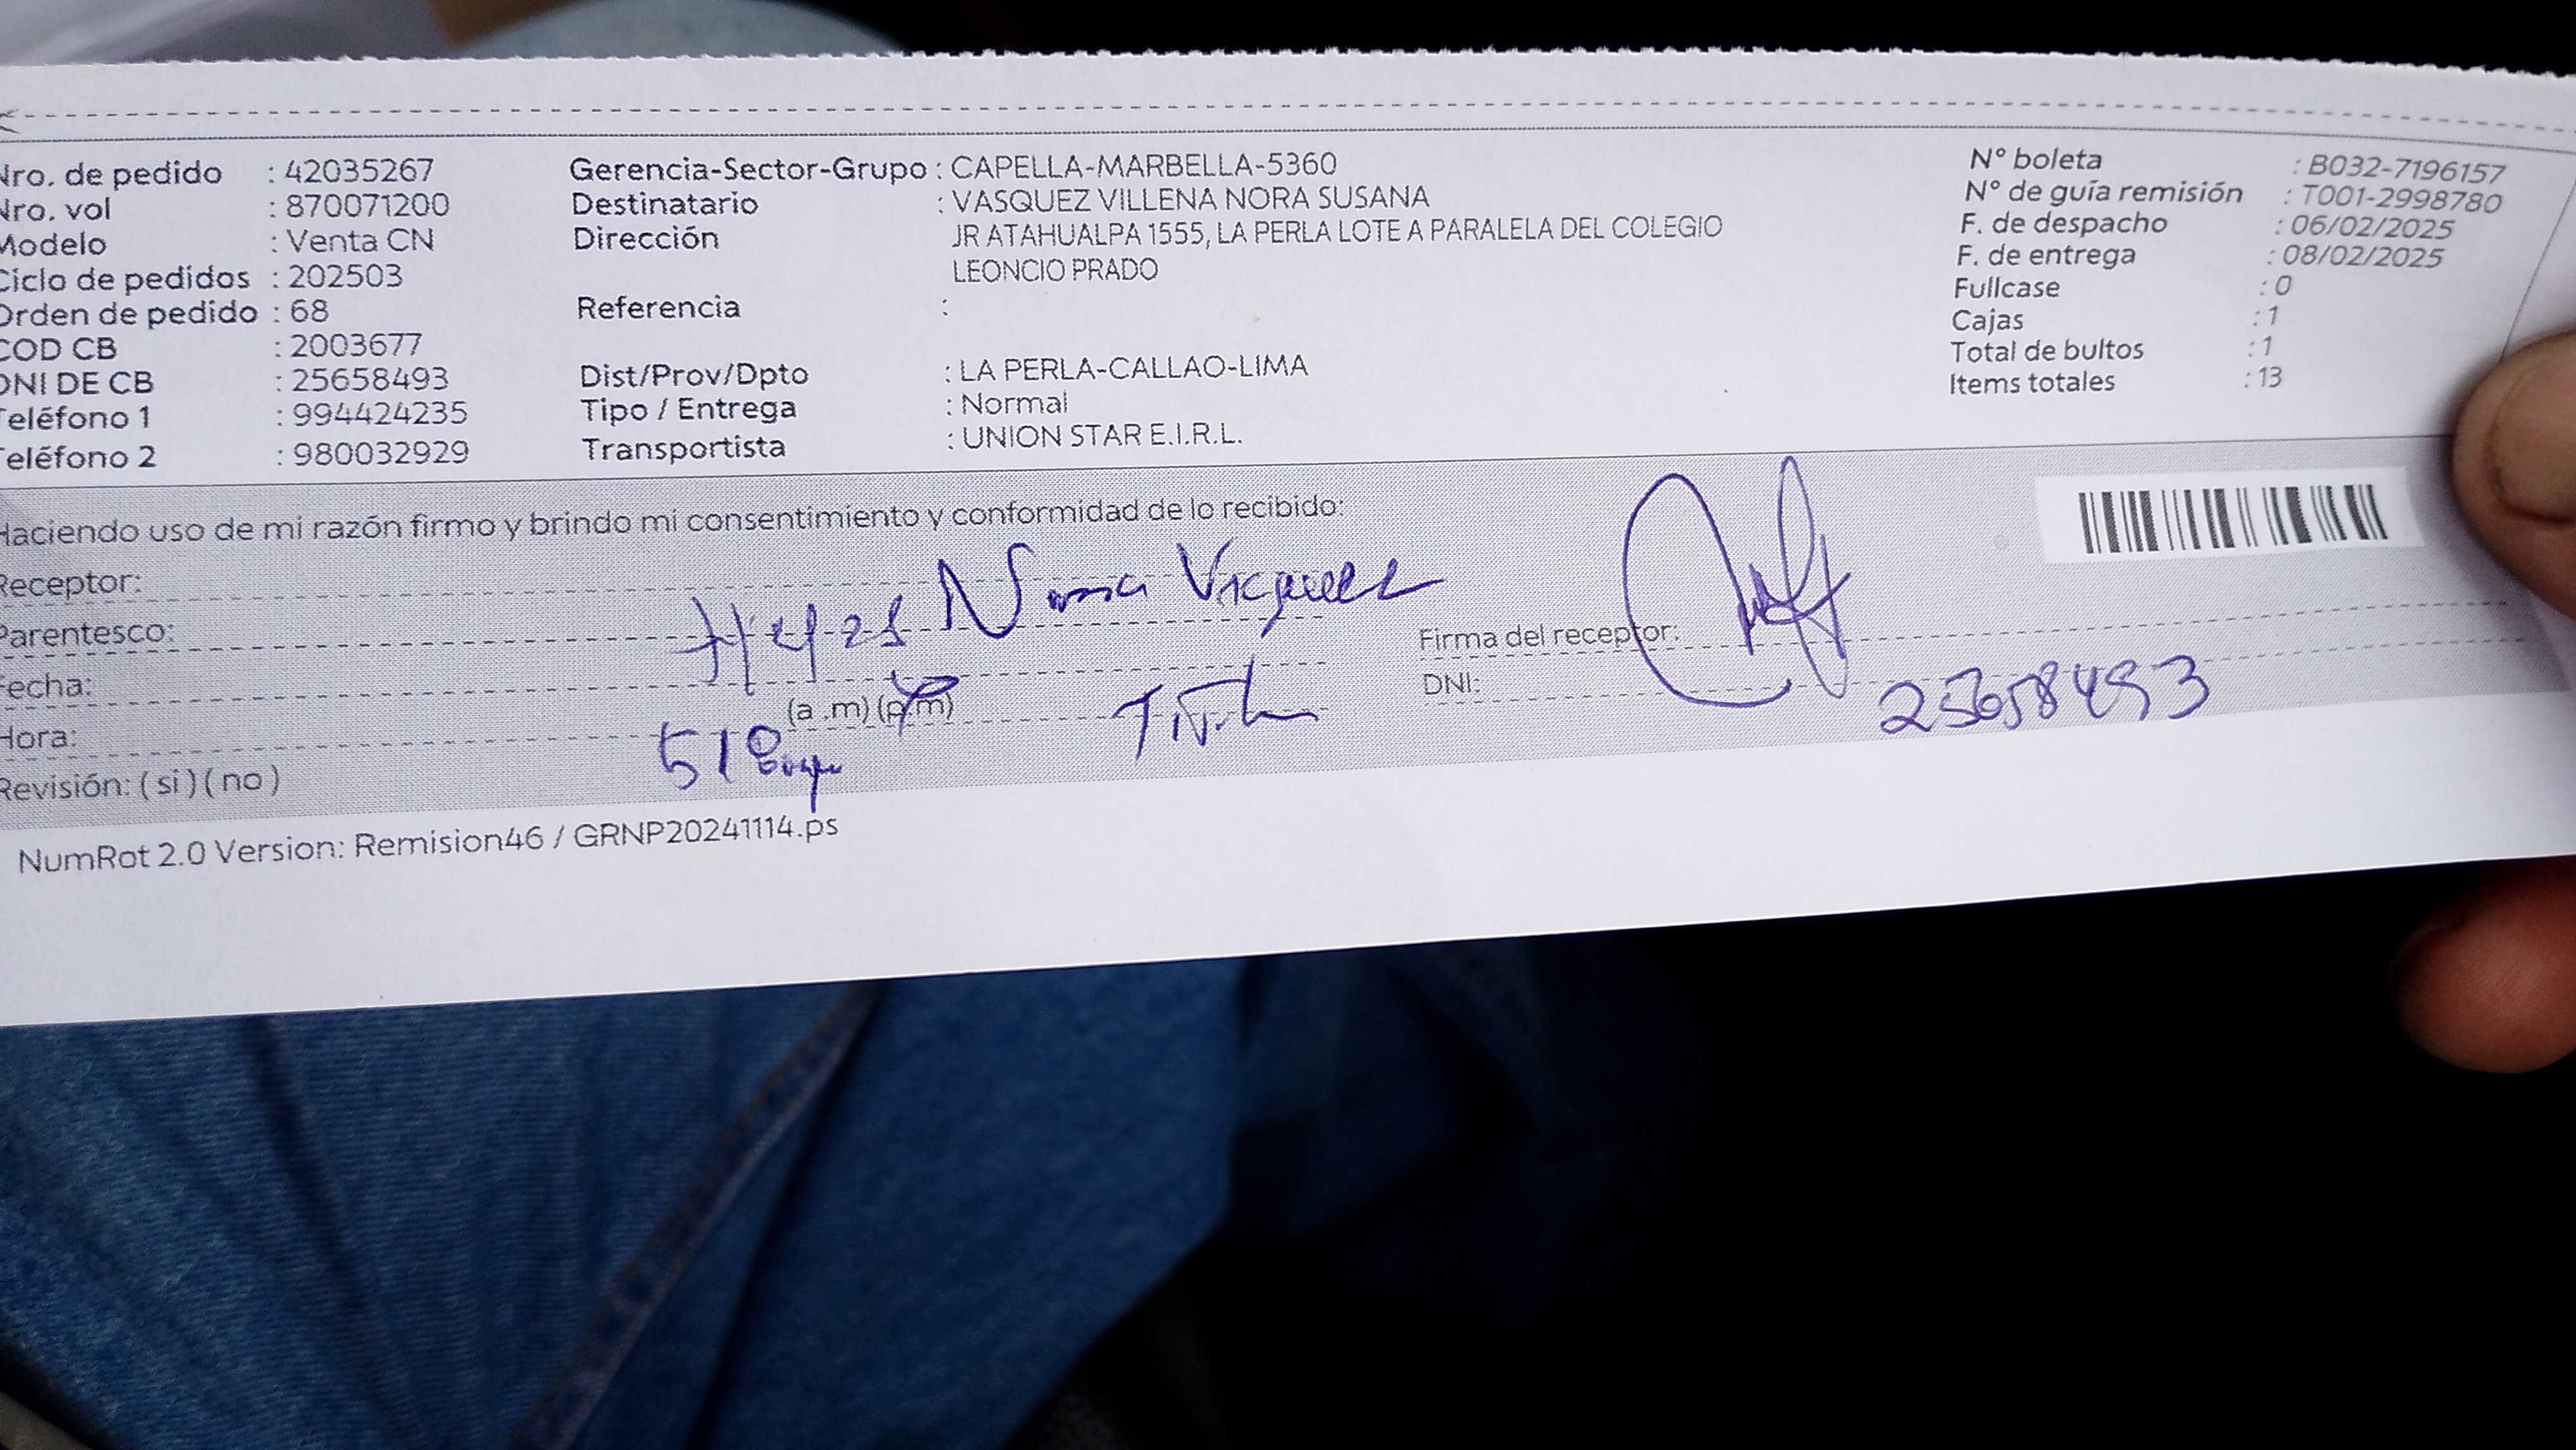 Nro. de pedido : 42035267
Nro. vol : 870071200
Modelo : Venta CN
Ciclo de pedidos : 202503
Orden de pedido : 68
COD CB : 2003677
DNI DE CB : 25658493
Teléfono 1 : 994424235
Teléfono 2 : 980032929
Gerencia-Sector-Grupo : CAPELLA-MARBELLA-5360
Destinatario : VASQUEZ VILLENA NORA SUSANA
Dirección JR ATAHUALPA 1555, LA PERLA LOTE A PARALELA DEL COLEGIO
LEONCIO PRADO
Referencia :
Dist/Prov/Dpto : LA PERLA-CALLAO-LIMA
Tipo / Entrega : Normal
Transportista : UNION STAR E.I.R.L.
N° boleta : B032-7196157
N° de guía remisión : T001-2998780
F. de despacho : 06/02/2025
F. de entrega : 08/02/2025
Fullcase : 0
Cajas : 1
Total de bultos : 1
Items totales : 13
Haciendo uso de mi razón firmo y brindo mi consentimiento y conformidad de lo recibido:
Receptor: Nora Vasquez
Parentesco:
Fecha:
Hora: (a .m) (p.m)
Revisión: ( si ) ( no )
Firma del receptor:
DNI: 25658493
NumRot 2.0 Version: Remision46 / GRNP20241114.ps